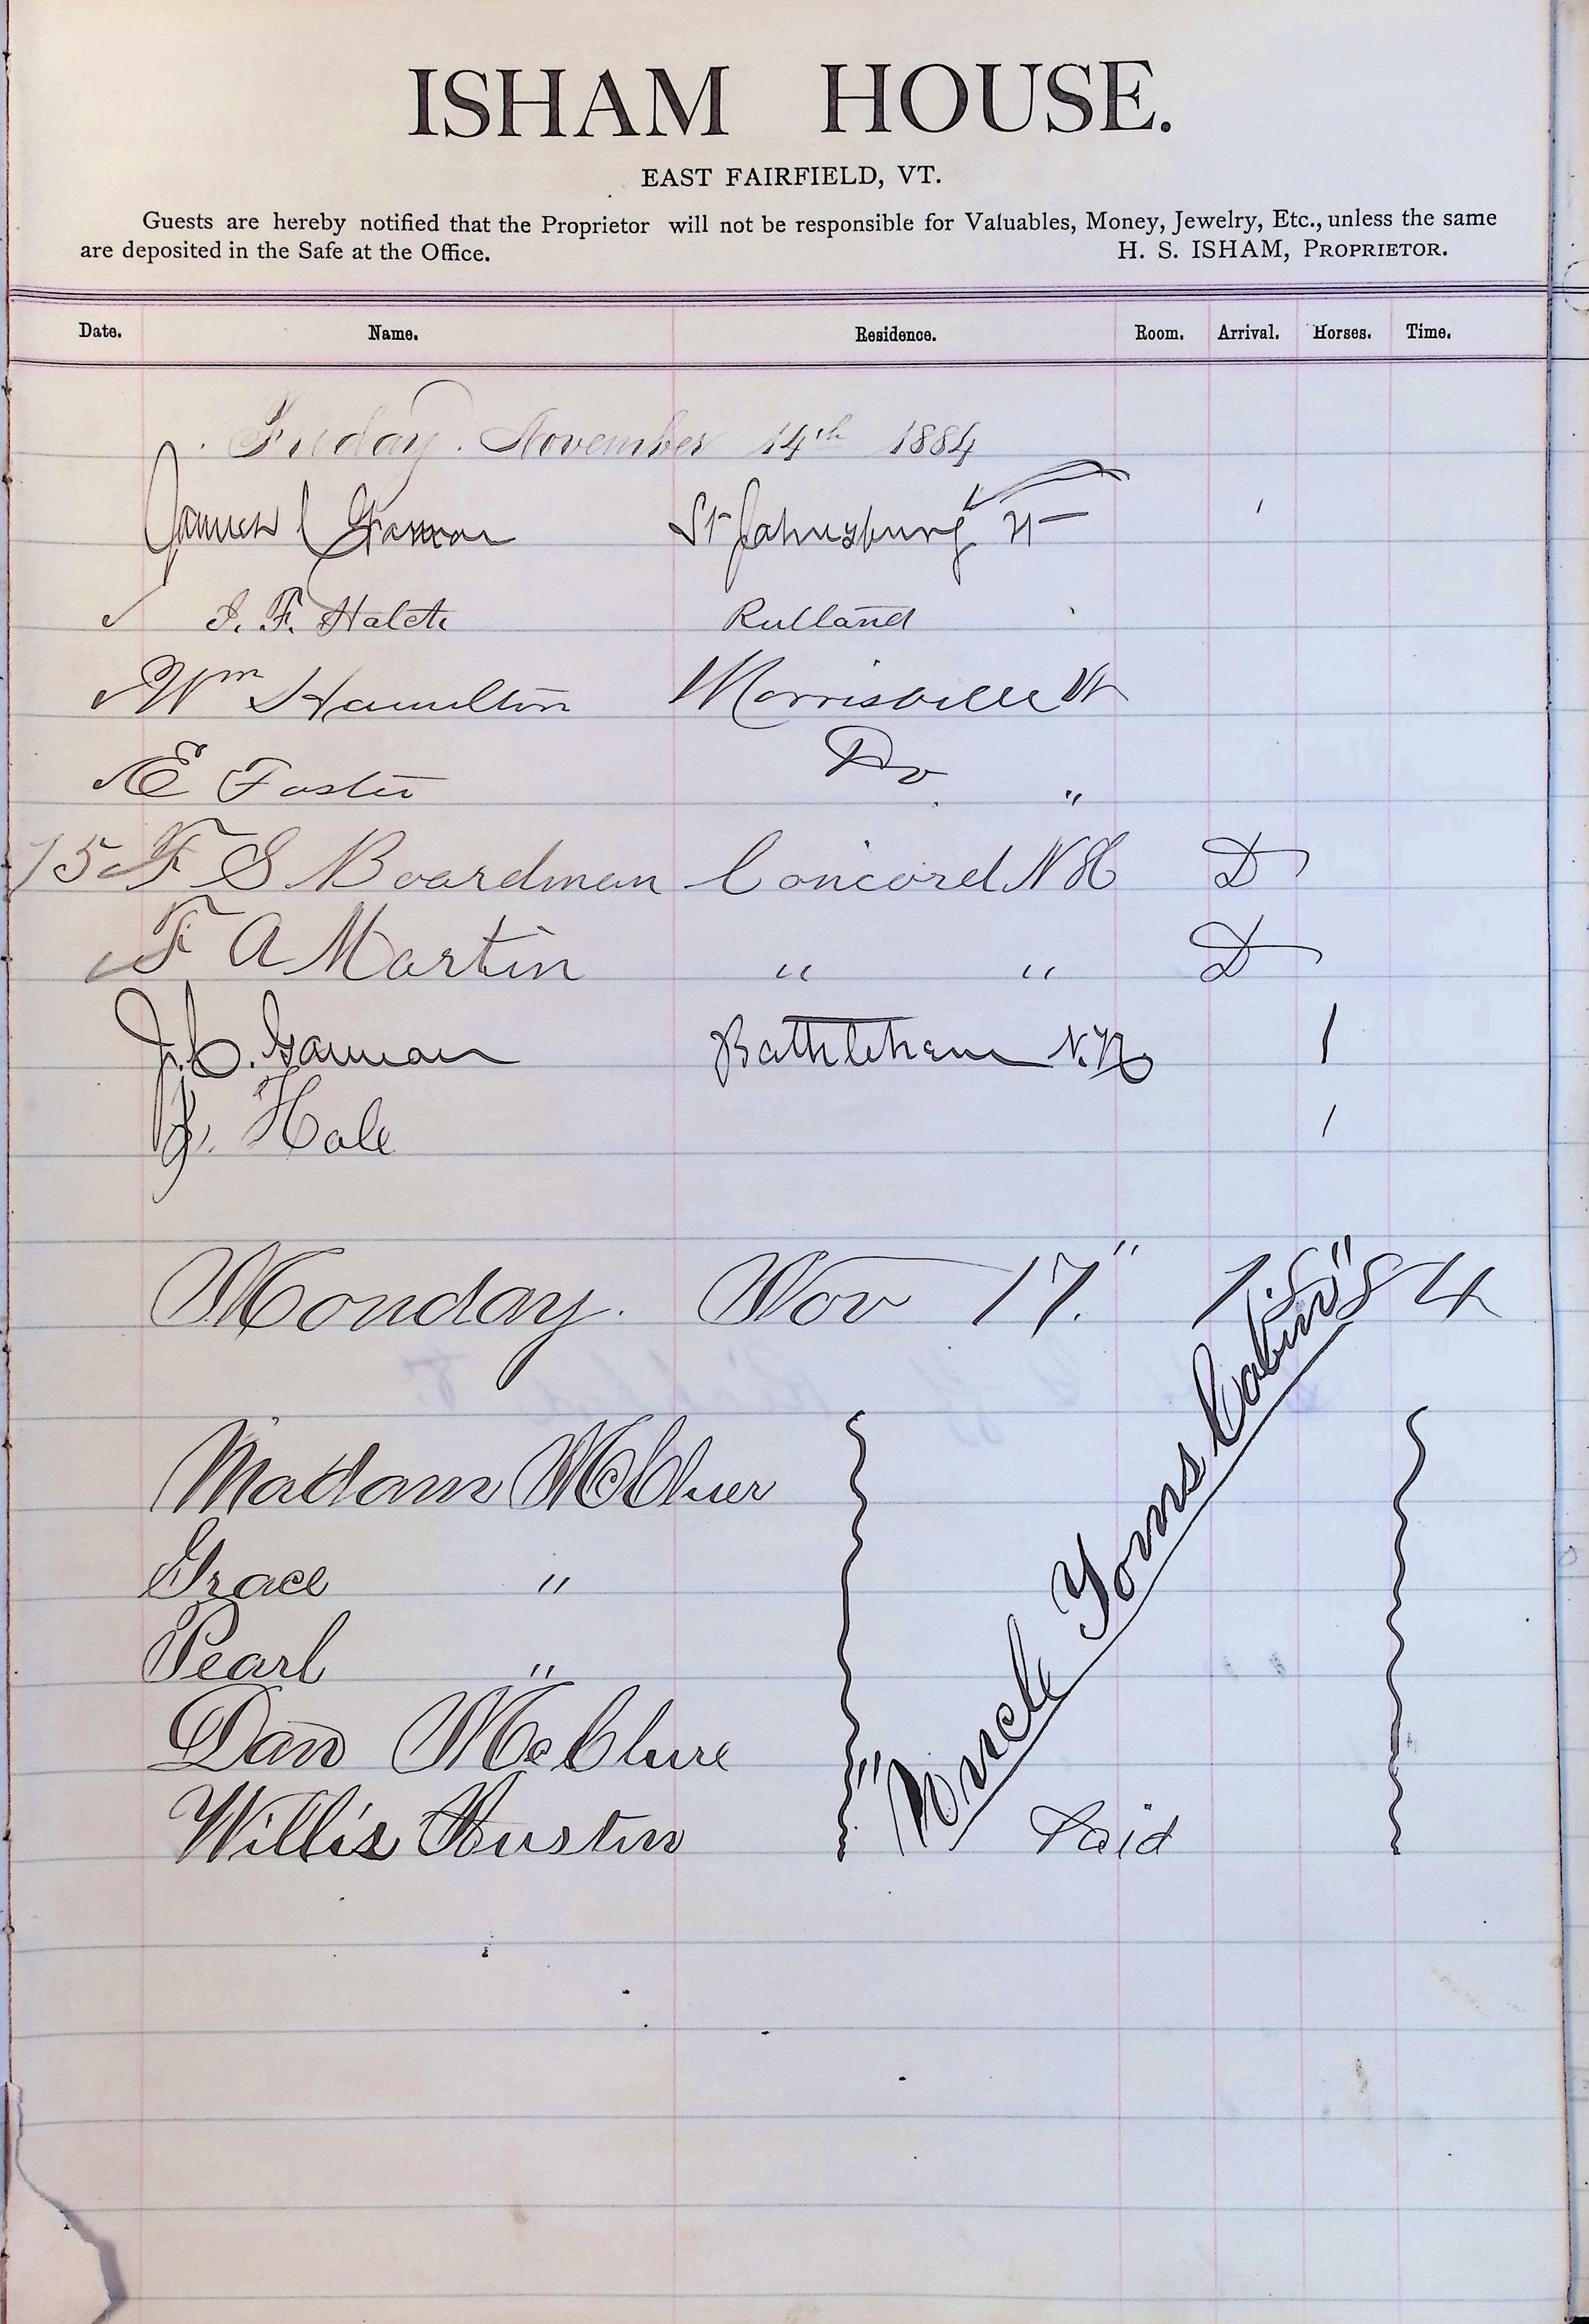 ISHAM HOUSE.
EAST FAIRFIELD, VT.
Guests are hereby notified that the Proprietor will not be responsible for Valuables, Money, Jewelry, Etc., unless the same
are deposited in the Safe at the Office. H. S. ISHAM, PROPRIETOR.
Date. Name. Residence. Room. Arrival. Horses. Time.
Friday. November 14th 1884
St Johnsbury Vt
I. F. Rutland
Wm Hamilton Morrisville Vt
E Foster Do "
15 F S Boardman Concord N H D
F A Martin " " D
J. C. Bathleham N.H 1
J. Hale 1
Monday. Nov 17." 1884
Madam McCluer
Grace "
Pearl "
Dan McClure
Willis Huston
"Oncle Toms Cabin"
Paid